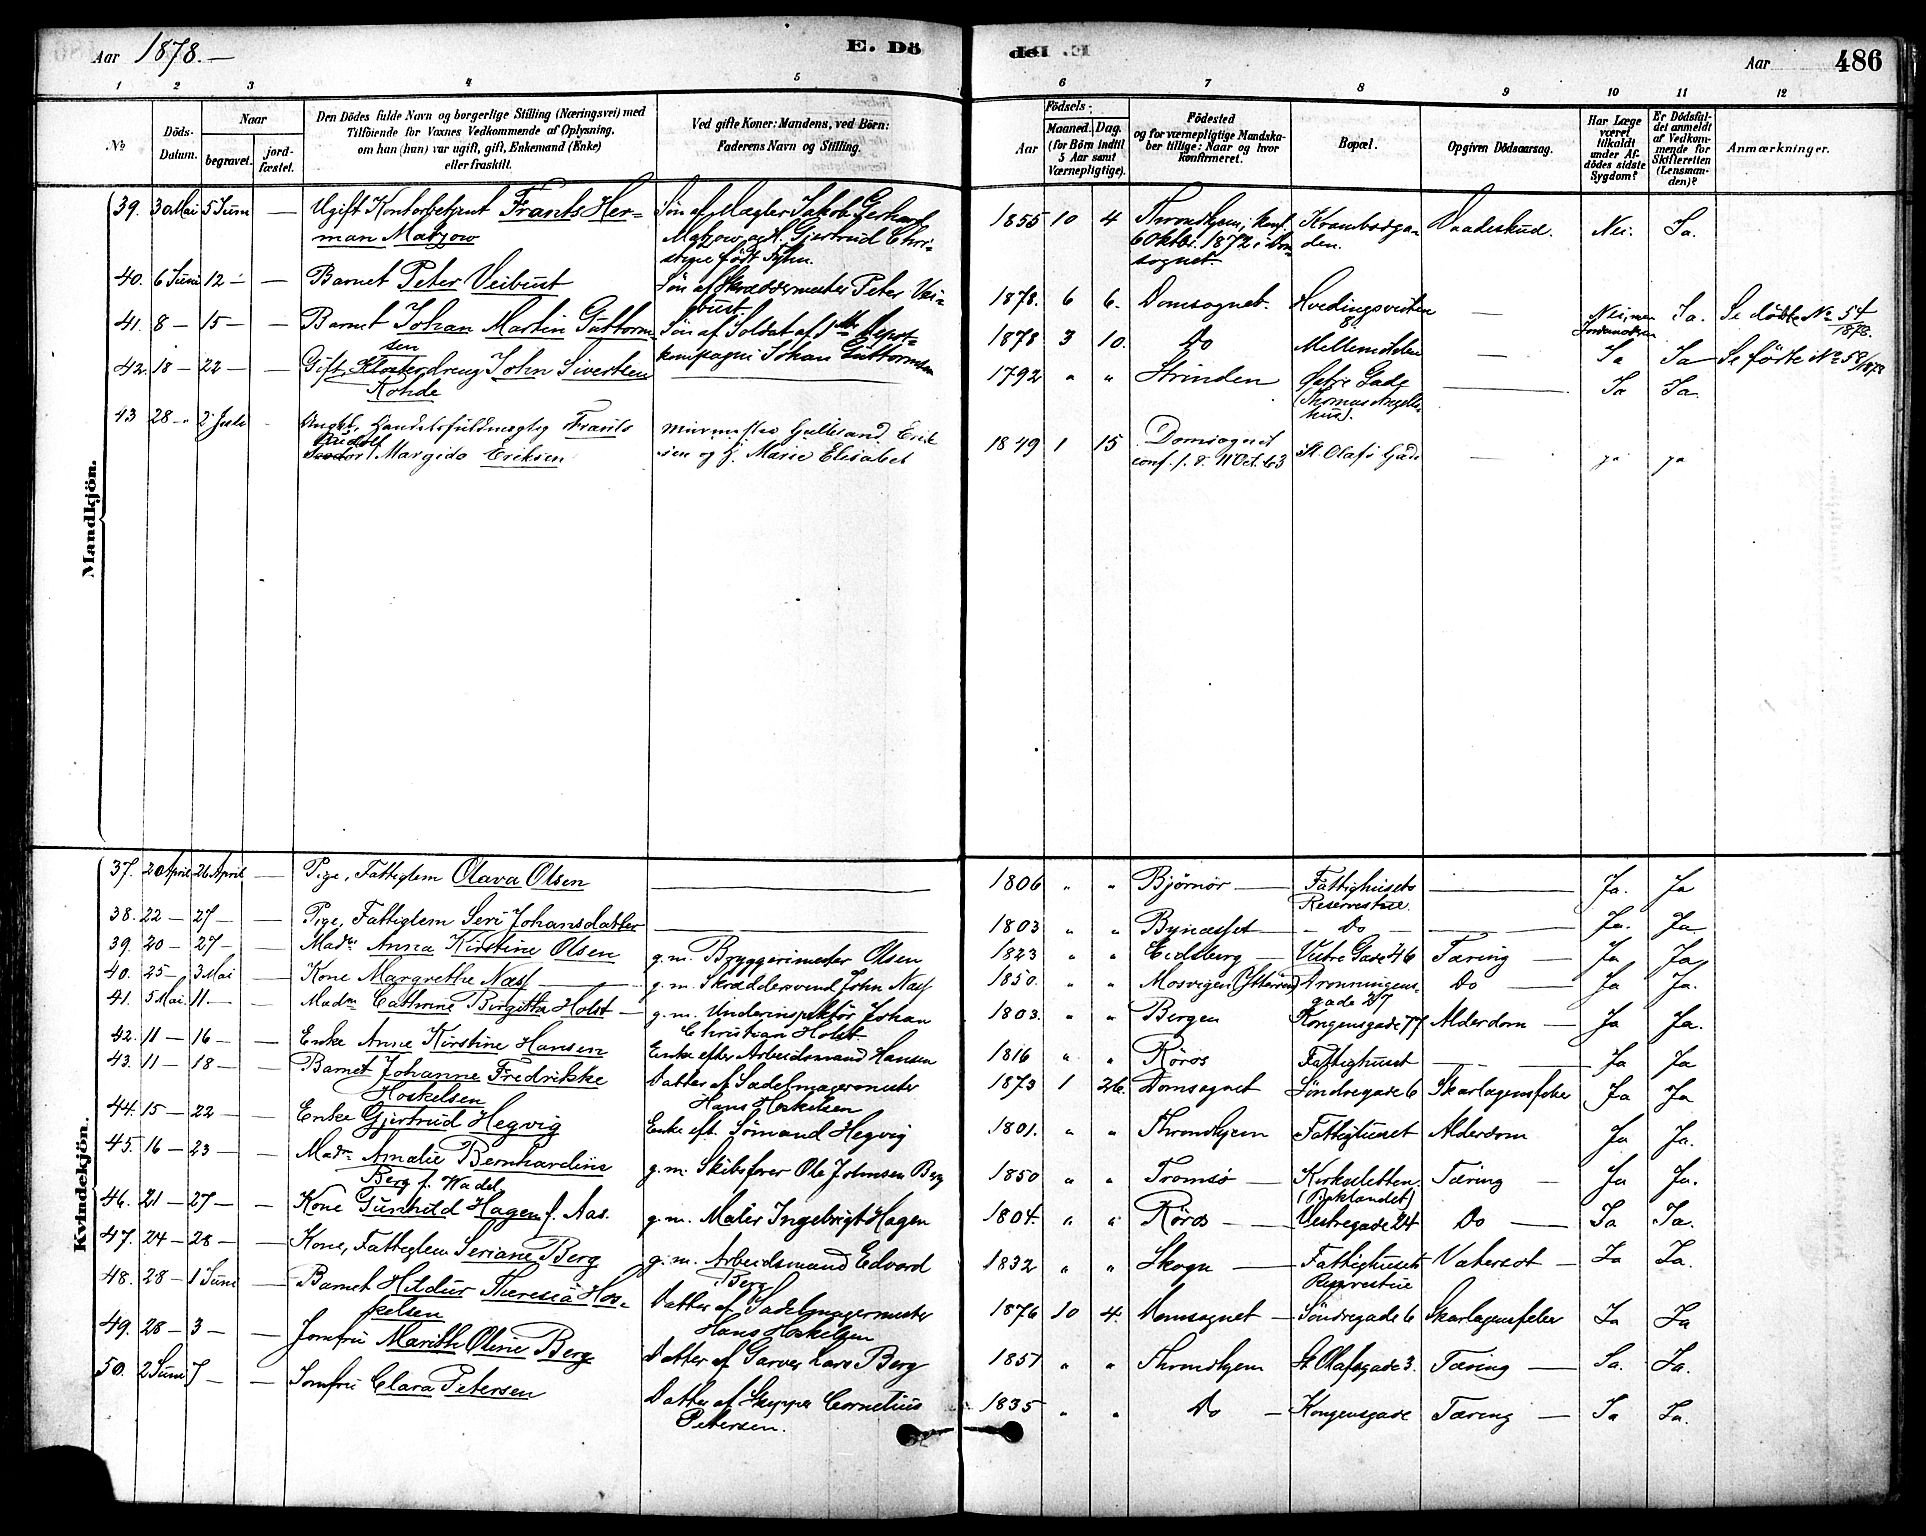 Aar 1878.—
E. Dö
Aar
486
1 2 3 4 5 6 7 8 9 10 11 12
No
Döds-Datum.
Naar
begravet.
jord-fæstet.
Den Dödes fulde Navn og borgerlige Stilling (Næringsvei) med
Tilföiende for Voxnes Vedkommende af Oplysning,
om han (hun) var ugift, gift, Enkemand (Enke)
eller fraskilt.
Ved gifte Koner: Mandens, ved Börn:
Faderens Navn og Stilling.
Födsels-
Aar
Maaned. Dag.
(for Börn indtil
5 Aar samt
Værnepligtige).
Födested
og for værnepligtige Mandska-
ber tillige: Naar og hvor
konfirmeret.
Bopæl.
Opgiven Dödsaarsag.
Har Læge
været
tilkaldt
under Af-
dödes sidste
Sygdom?
Er Dödsfal-
det anmeldt
af Vedkom-
mende for
Skifteretten
(Lensman-
den)?
Anmærkninger.
Mandkjön.
39. 30 Mai 5 Juni — Ugift Kontorbetjent Frants Her- Søn af Mægler Jakob Gerhard 1855 10 4 Throndhjem, konf. Krambodga- Vaadeskud. Nei. Ja.
man Matzow Matzow og H. Gjertrud Chri- 6 Oktbr. 1872 i Dom- den.
stine født sognet.
40. 6 Juni 12 — — Barnet Peter Veibust Søn af Skræddermester Peter Vei- 1878. 6 6. Domsognet. Hvedingsveiten — Nei, men Ja. Se døbte No 54
bust. 8 Jordemoderen 1878.
41. 8 — 15 — — Barnet Johan Martin Guttorm- Søn af Soldat af Depot- 1878 3 10. Do Mellemolden — Ja Ja Se førte No 58/1878
sen kompagni Johan Guttormsen
42. 18 — 22 — — Gift, Klosterdreng John Sivertsen 1792 " " Strinden Østre Gade — Ja Ja
Rohde (Thomas Angells
hus).
43 28 — 2 Juli Ungk. Handelsfuldmægtig Frants Murmester Gulbrand Erik 1849 1 15 Domsognet St. Olafs Gade — ja ja
Rudolf Margido Eriksen sen og H. Marie Elisabet conf. 11 Oct. 63
Kvindekjön.
37. 20 April 26 April — Pige, Fattiglem Olava Olsen — 1806 " " Bjørnør — Fattighusets — Ja. Ja
Reservestue.
38. 22 — 27 — — Pige, Fattiglem Seri Johansdatter — 1803 " " Bynæsset — Do — — Ja. Ja
39. 20 — 27 — — Madm Anna Kirstine Olsen g. m. Bryggerimester Olsen 1823 " " Eidsberg — Vestre Gade 46 Tæring — Ja Ja
40. 25 — 3 Mai — Kone Margrethe Næss g. m. Skræddersvend John Næss 1850. " " Mosvigen (Ytterøen) Dronningens- Do — Ja Ja.
gade 27
41. 5 Mai 11 — — Madm Cathrine Birgitta Holst — g. m. Underinspektør Johan 1803. " " Bergen Kongensgade 77 Alderdom — Ja Ja.
Christian Holst
42. 11 — 16 — — Enke Anne Kirstine Hansen Enke efter Arbeidsmand Hansen 1816 " " Röros Fattighuset — Ja Ja
43. 11 — 18 — — Barnet Johanne Fredrikke Datter af Sadelmagermester 1873 1 26. Domsognet Søndregade 6 Skarlagensfeber Ja Ja
Hoskelsen Hans Hoskelsen
44. 15 — 22 — — Enke Gjertrud Hegvig Enke eft. Sømand Hegvig 1801. " " Throndhjem Fattighuset Alderdom Ja Ja.
45. 16 — 23 — — Madm Amalie Bernhardine g. m. Skibsfører Ole Johnsen Berg 1850 " " Tromsø — Kirkesletten. Tæring — Ja Ja.
Berg f. Wadel (Baklandet)
46. 21 — 27 — — Kone Gunhild Hagen f. Aas. g. m. Maler Ingebrigt Hagen 1804. " " Röros — Vestregade 24 Do — Ja Ja.
47. 24 — 28 — — Kone, Fattiglem Seriane Berg g. m. Arbeidsmand Edvard 1832 " " Skogn — Fattighusets Vatersot — Ja Ja.
Berg Reservestue
48. 28 — 1 Juni — Barnet Hildur Theresia Hos- Datter af Sadelmagermester 1876 10 4. Domsognet — Søndregade 6 Skarlagensfeber Ja Ja
kelsen Hans Hoskelsen
49. 28 — 3 — — Jomfru Marith Oline Berg Datter af Garver Lars Berg 1851 " " Throndhjem St. Olafsgade 3. Tæring — Ja. Ja.
50. 2 Juni 7 — — Jomfru Clara Petersen Datter af Skipper Cornelius 1835 " " Do — Kongensgade Tæring — Ja Ja.
Petersen.